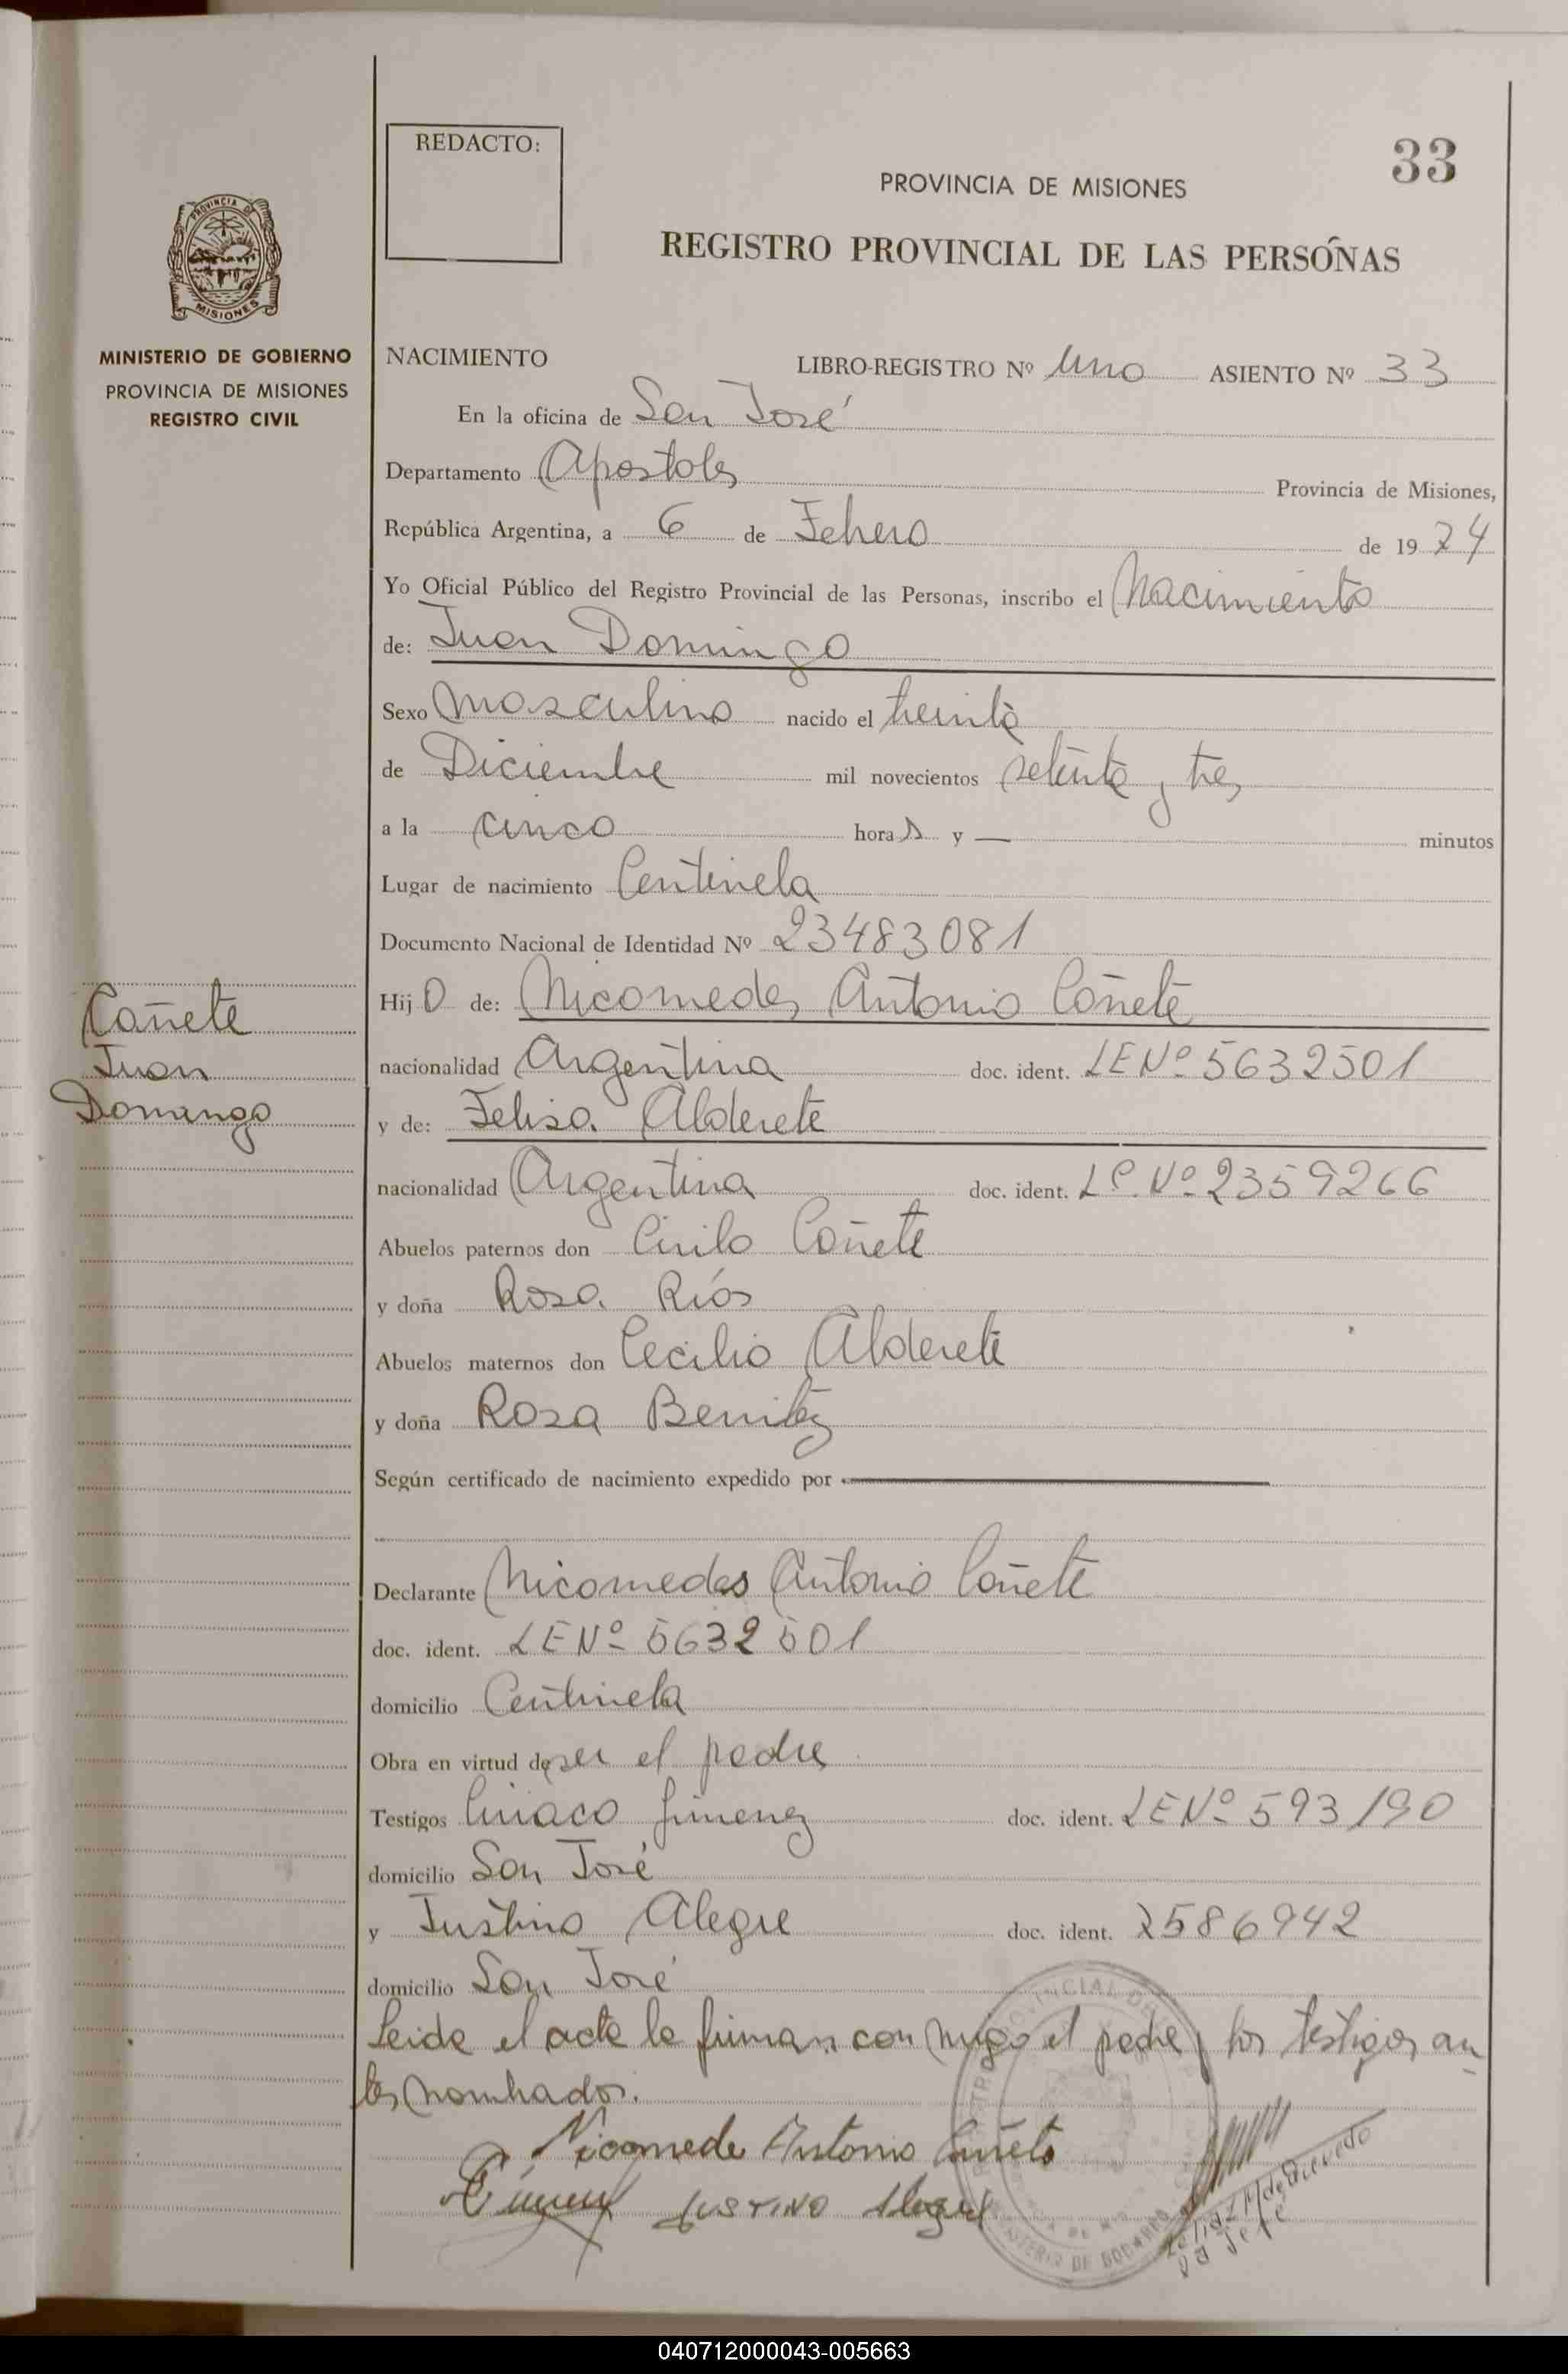 REDACTO:
33
PROVINCIA DE MISIONES
REGISTRO PROVINCIAL DE LAS PERSONAS
PROVINCIA DE
MISIONES
MINISTERIO DE GOBIERNO
PROVINCIA DE MISIONES
REGISTRO CIVIL
NACIMIENTO LIBRO-REGISTRO Nº Uno ASIENTO Nº 33
En la oficina de San José
Departamento Apostoles Provincia de Misiones,
República Argentina, a 6 de Febrero de 1974
Yo Oficial Público del Registro Provincial de las Personas, inscribo el Nacimiento
de: Juan Domingo
Sexo Masculino nacido el treinta
de Diciembre mil novecientos setenta y tres
a la cinco horas y — minutos
Lugar de nacimiento Centinela
Documento Nacional de Identidad Nº 23483081
Cañete
Juan
Domingo
Hijo de: Nicomedes Antonio Cañete
nacionalidad Argentina doc. ident. LE Nº 5632501
y de: Felisa Alderete
nacionalidad Argentina doc. ident. LC. Nº 2359266
Abuelos paternos don Cirilo Cañete
y doña Rosa Ríos
Abuelos maternos don Cecilio Alderete
y doña Rosa Benitez
Según certificado de nacimiento expedido por
Declarante Nicomedes Antonio Cañete
doc. ident. LE Nº 5632501
domicilio Centinela
Obra en virtud de ser el padre
Testigos Ciriaco Jimenez doc. ident. LE Nº 593190
domicilio San José
y Justino Alegre doc. ident. 2586942
domicilio San José
Leida el acta la firman con migo el padre y los testigos an-
tes nombrados.
Nicomede Antonio Cañete
Justino Alegre
MINISTERIO DE GOBIERNO
Jefe
040712000043-005663